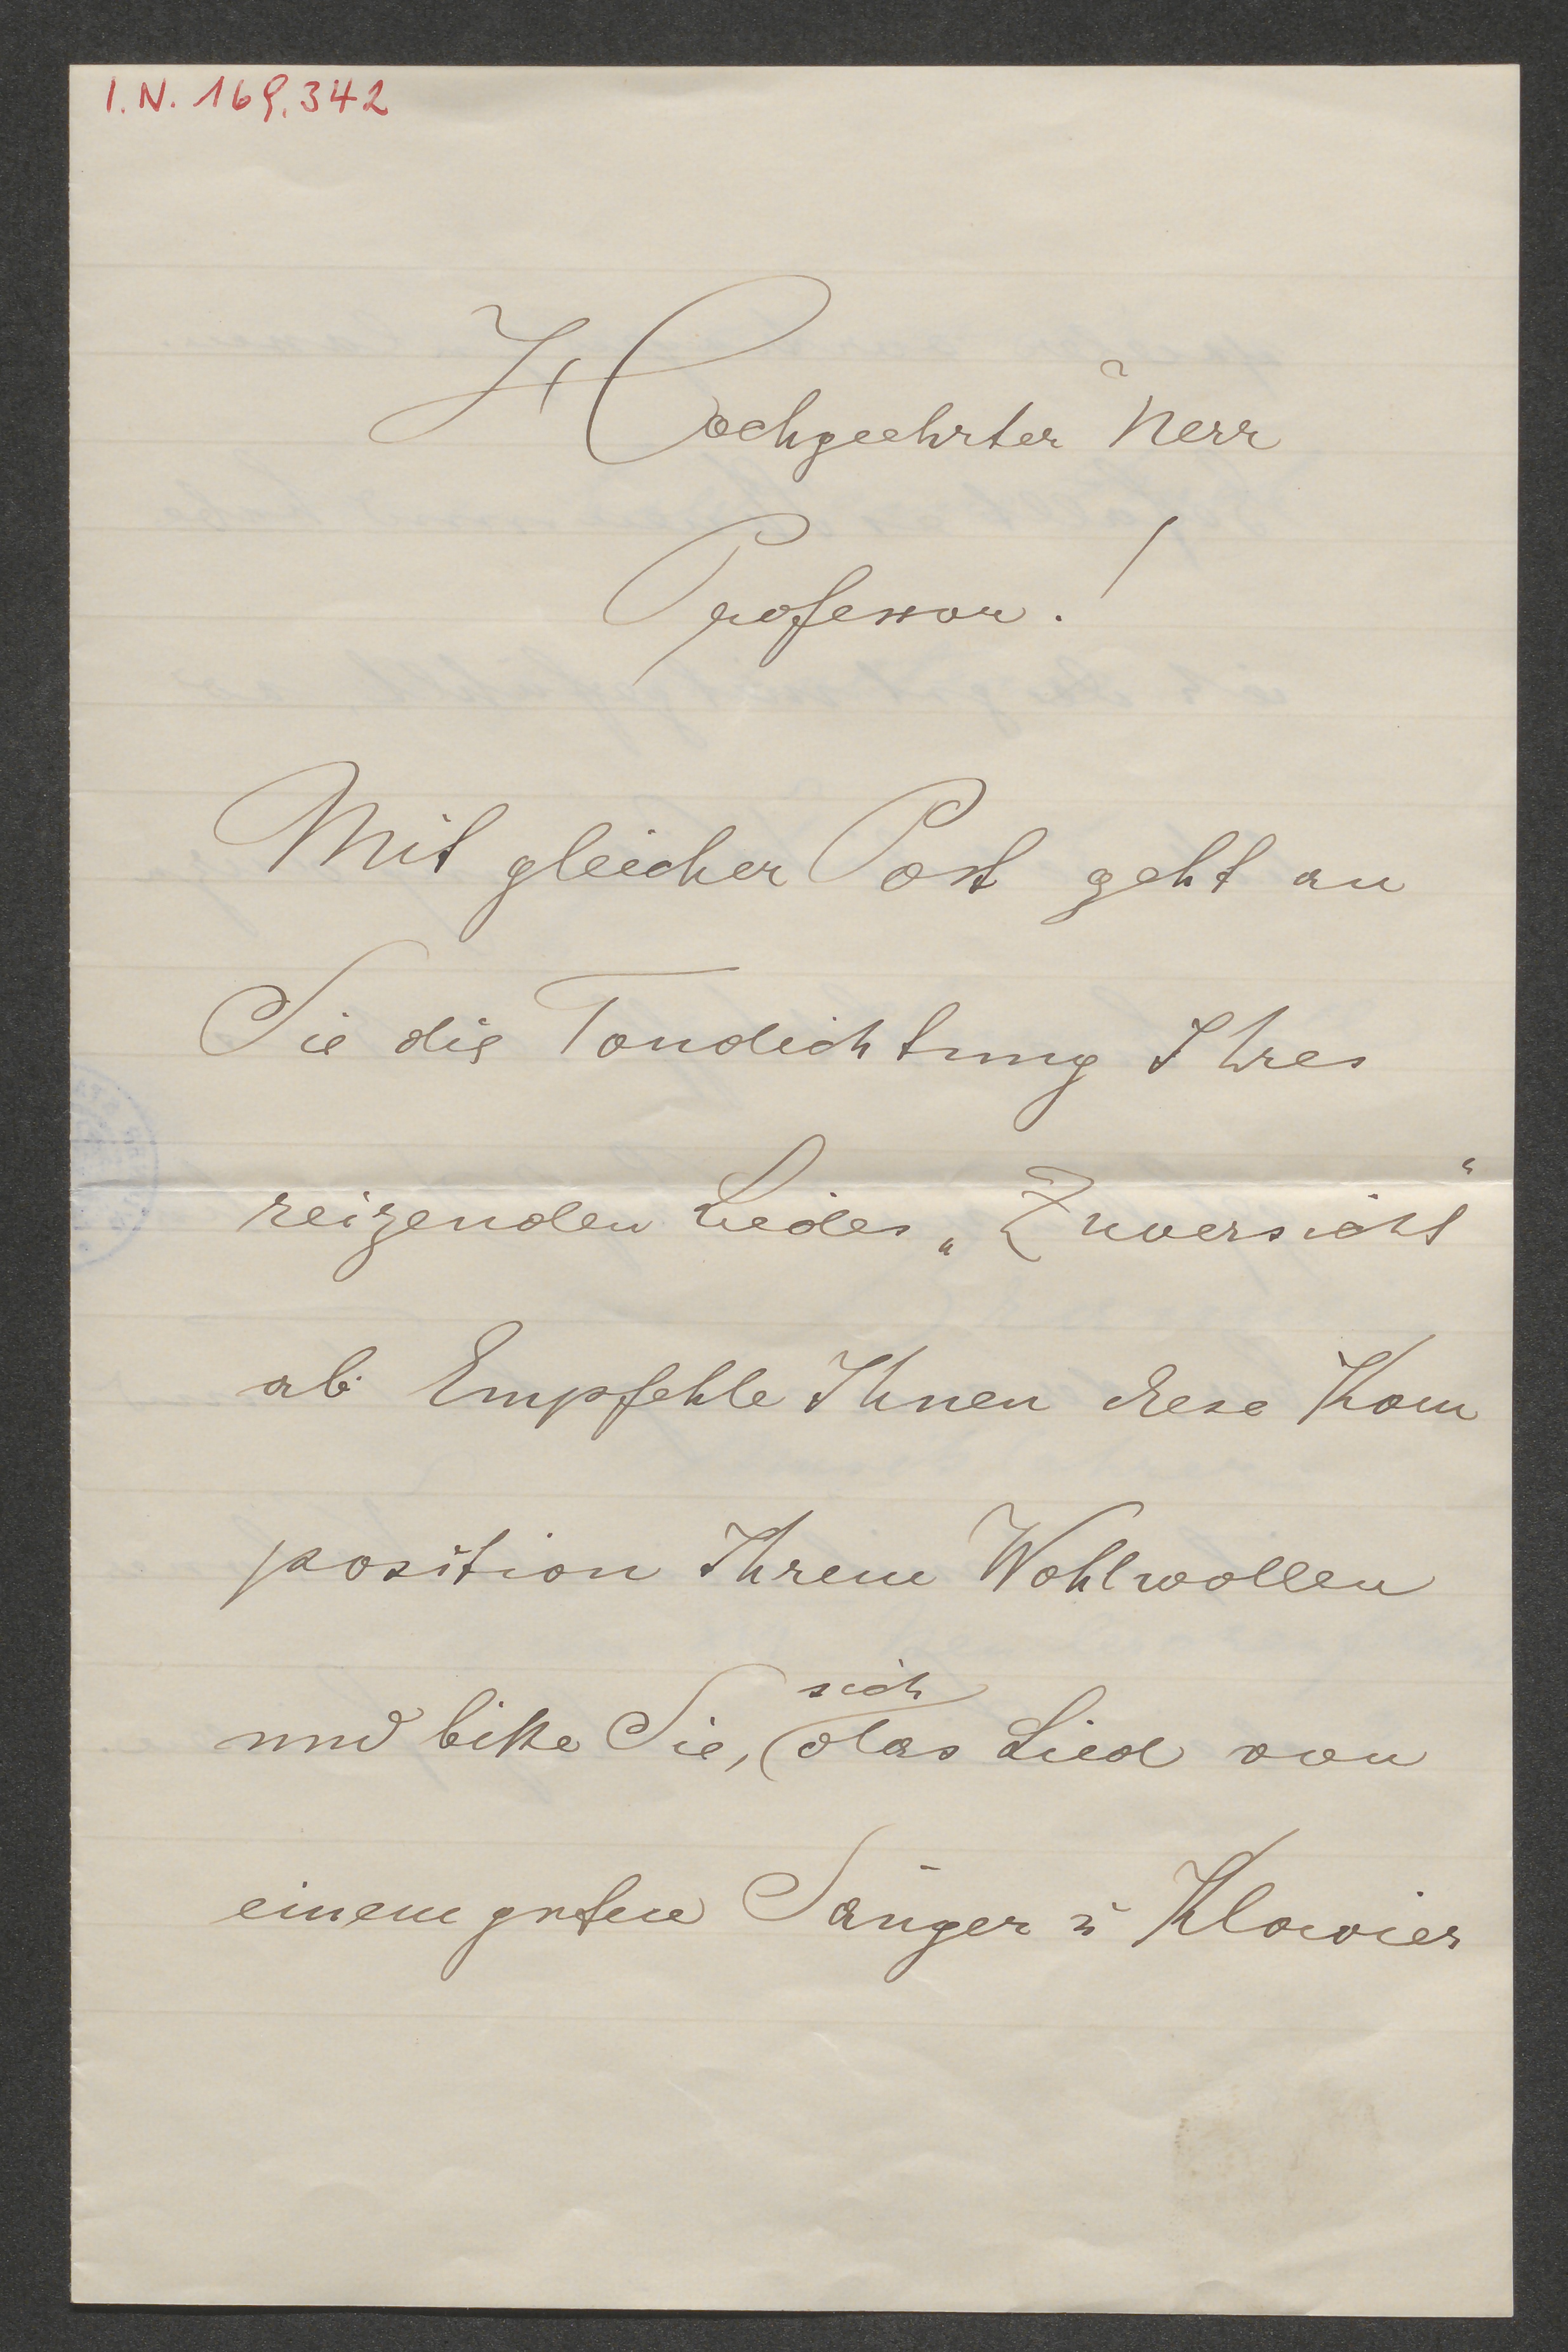 I.N. 169.342
Hochgeehrter Herr
Professor!
Mit gleicher Post geht an
Sie die Tondichtung Ihres
reizenden Liedes „Zuversicht“
ab. Empfehle Ihnen diese Kom
position Ihrem Wohlwollen
und bitte Sie, sich das Lied von
einem guten Sänger u Klavier